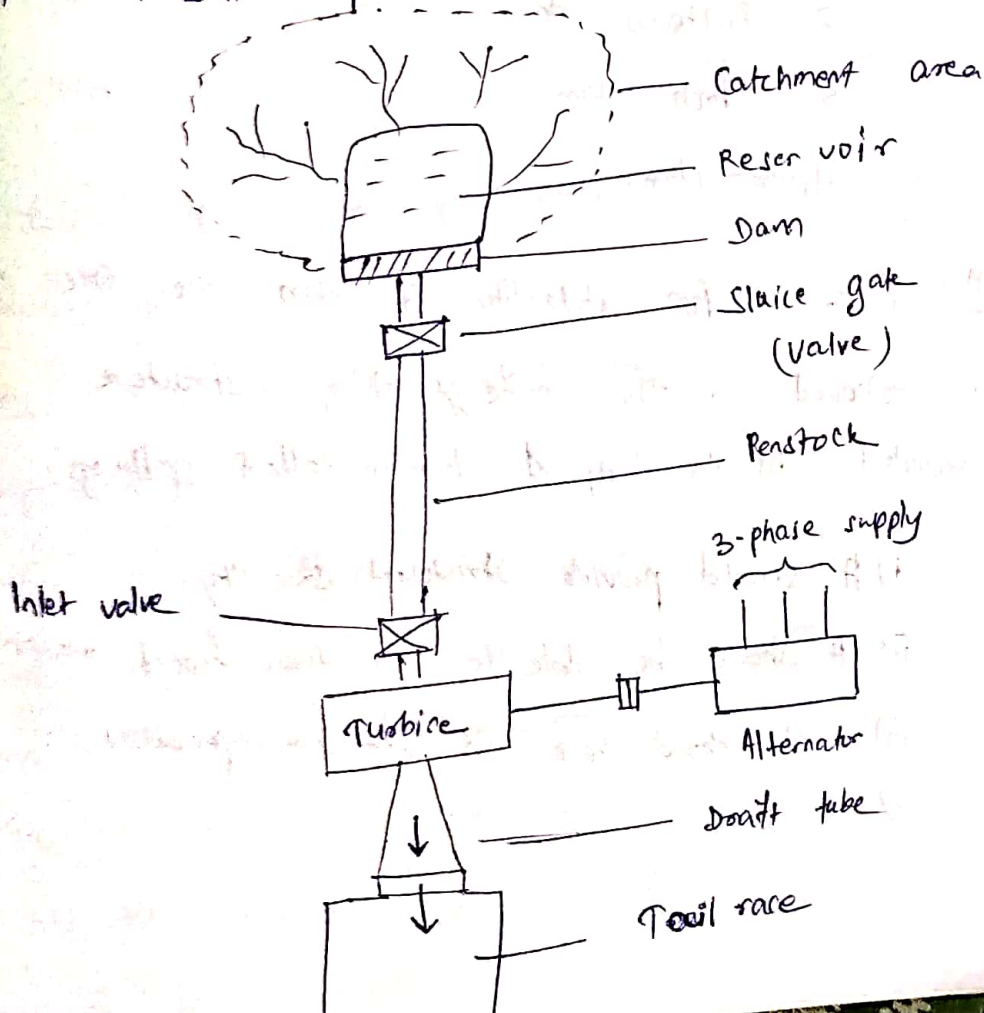 Catchment area
Reservoir
Dam
Sluice gate
(valve)
Penstock
3-phase supply
Inlet valve
Turbine
Alternator
Draft tube
Tail race